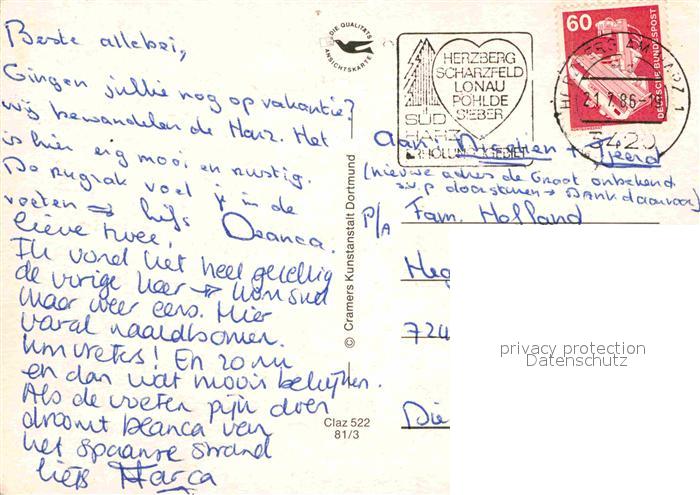 Beste allebei,
Gingen jullie nog op vakantie?
wij bewandelen de Harz. Het
is hier erg mooi en rustig.
De rugzak voel je in de
voeten → liefs Bianca.
lieve twee,
Ik vond het heel gezellig
de vorige keer → kom snel
maar weer eens. Hier
vooral naaldbomen.
km vreters! En zo nu
en dan wat moois bekijken.
Als de voeten pijn doen
droomt bianca van
het spaanse strand
liefs
DIE QUALITÄTS
ANSICHTSKARTE
© Cramers Kunstanstalt Dortmund
Claz 522
81/3
HERZBERG
SCHARZFELD
LONAU
PÖHLDE
SIEBER
SÜD
HARZ
ERHOLUNGSGEBIET
60
DEUTSCHE BUNDESPOST
HERZBERG AM HARZ 1
3420
Aan
(nieuwe adres de Groot onbekend
s.v.p doorsturen → Dank daarvoor)
P/A Fam. Holland
Heg
724
Die
privacy protection
Datenschutz